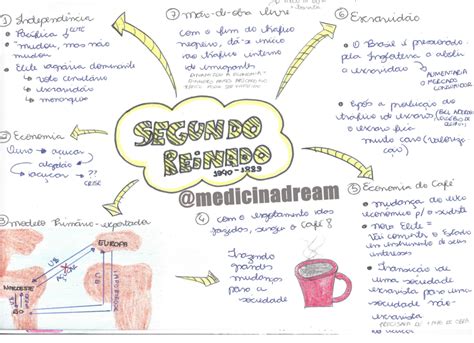 1) Independência
• Pacífica p/ elite
• mudou, mas não mudou
• Elite agrária dominante
↳ voto censitário
↳ escravidão
↳ monarquia
2) Economia
Ouro → açúcar
algodão
açúcar → ??
CRISE
3) modelo Primário-exportador
EUROPA
NORDESTE
RJ
SEGUNDO
REINADO
1840 - 1889
@medicinadream
7) Mão-de-obra livre
com o fim do tráfico
negreiro, dá-se início
ao tráfico interno
de imigrantes
4) com o esgotamento dos
fatores, surge o Café!
Trazendo
grandes
mudanças
para a
sociedade
6) Escravidão
• O Brasil é pressionado
pela Inglaterra a abolir
a escravidão
AUMENTARIA
O MERCADO
CONSUMIDOR
• Após a proibição do
tráfico de escravos
o escravo fica
muito caro (valorização)
5) Economia do Café
• mudança do eixo
econômico p/ o sudeste
• nova Elite =
vai converter o Estado
em instrumento de seus
interesses
• Transição de
uma sociedade
escravista para
uma sociedade
não-
escravista